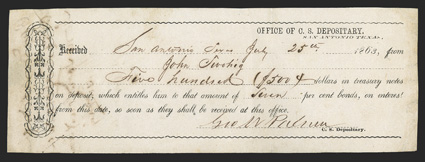 OFFICE OF C. S. DEPOSITARY,
SAN ANTONIO TEXAS,
Received San Antonio Texas July 25th 1863, from
John Twohig
Five hundred ($500 dollars in treasury notes
on deposit, which entitles him to that amount of Seven per cent bonds, on interest
from this date, so soon as they shall be received at this office.
Geo. W. Palmer
C. S. Depositary.